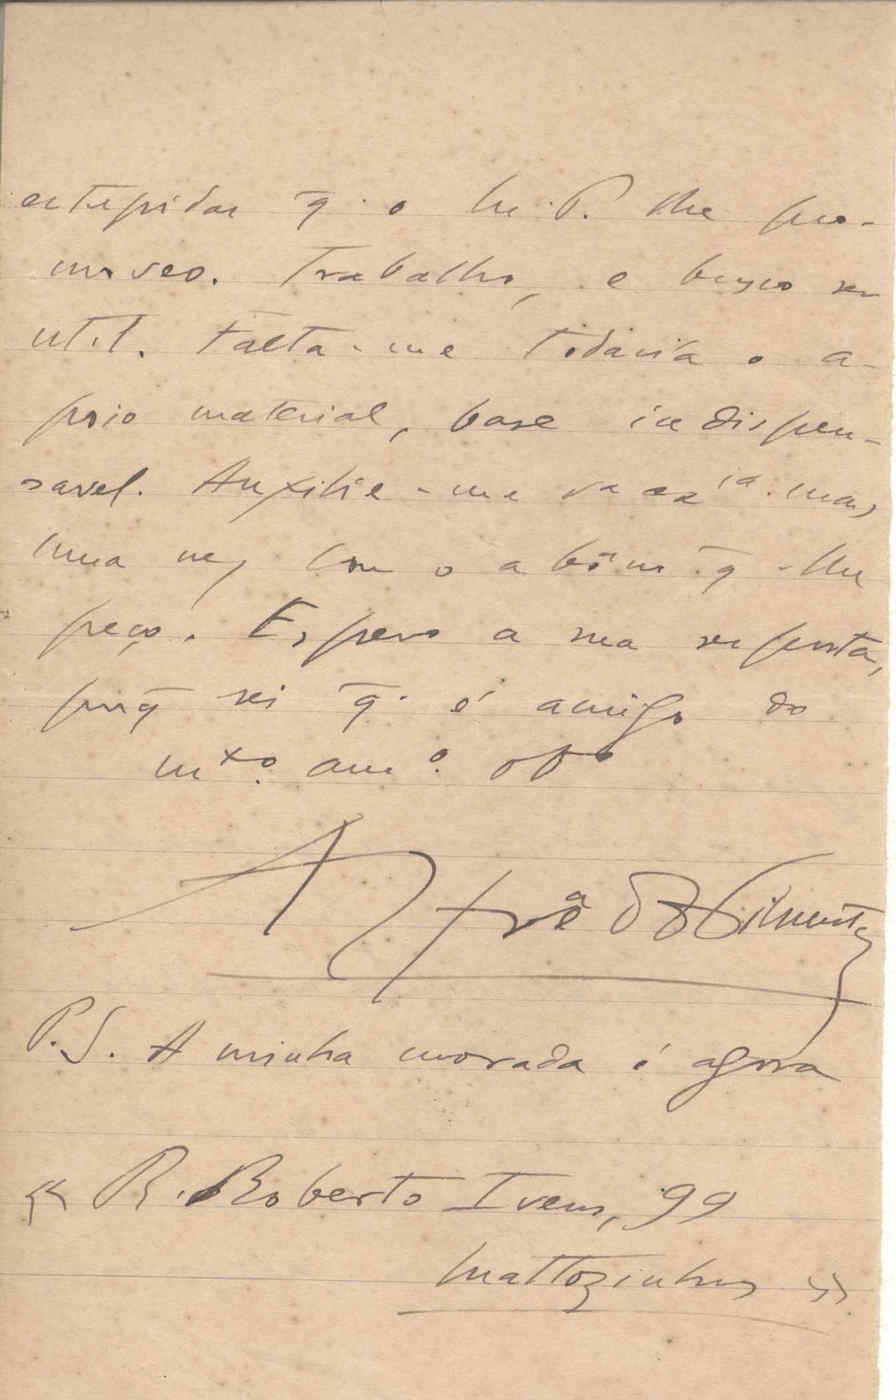 estupidas q̄. o M. P. lhe pro-
moveo. Trabalho, e busco ser
util. Falta-me todavia o a-
poio material, base indispen-
savel. Auxilie-me V. Ex.cia mais
uma vez com o abôno q̄ lhe
peço. Espero a sua resposta,
porq̄ sei q̄. é amigo do
m.to am.o ob.o
Alfredo Pimenta
P.S. A minha morada é agora
« R. Roberto Ivens, 99
Mattozinhos »